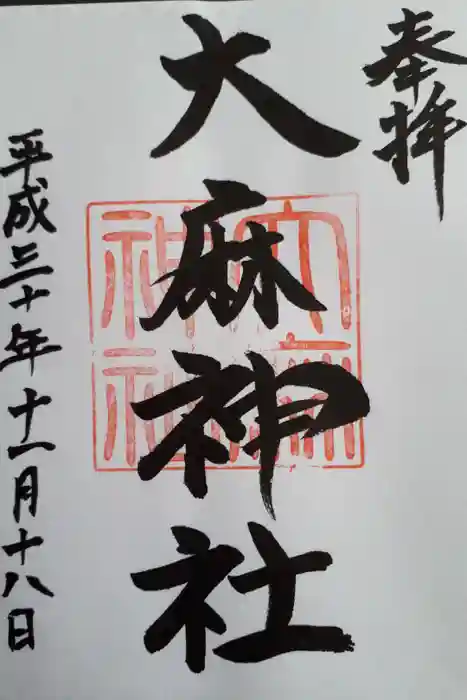 奉拝
大麻神社
大麻
神社
平成三十年十一月十八日